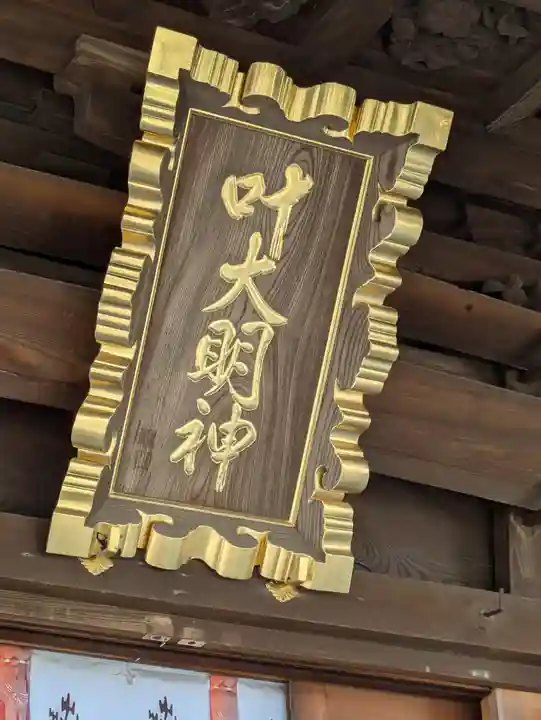 叶大明神